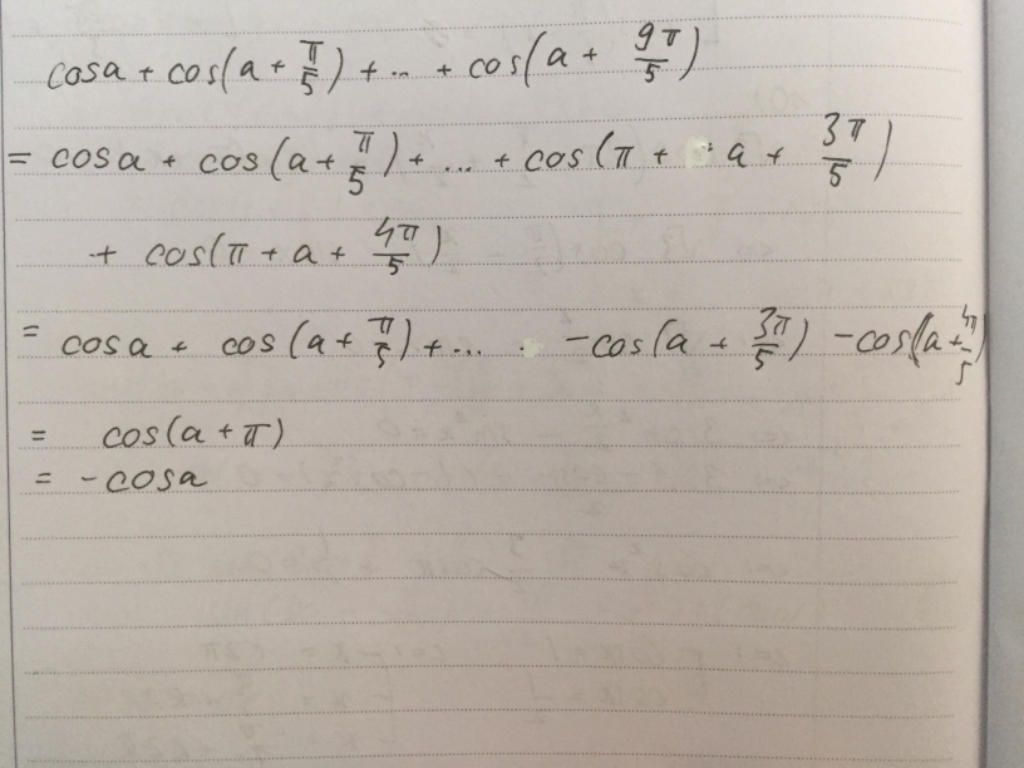 cosa + cos(a + π/5) + ... + cos(a + 9π/5)
= cosa + cos(a + π/5) + ... + cos(π + a + 3π/5)
+ cos(π + a + 4π/5)
= cosa + cos(a + π/5) + ... - cos(a + 3π/5) - cos(a + 4π/5)
= cos(a + π)
= -cosa